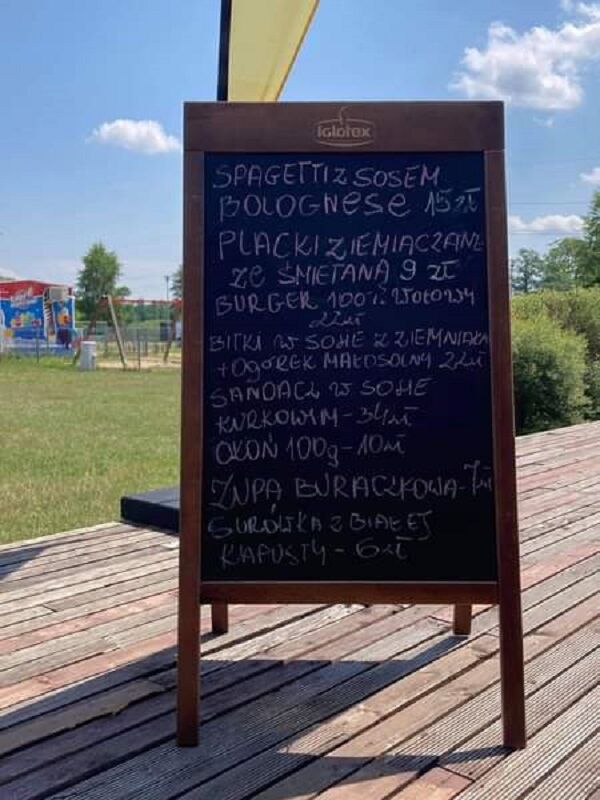 iglotex
SPAGETTI Z SOSEM
BOLOGNESE 15 zł
PLACKI ZIEMIACZANE
ZE ŚMIETANĄ 9 zł
BURGER 100% WOŁOWY
22zł
BITKI W SOSIE Z ZIEMNIAKA
+ OGÓREK MAŁOSOLNY 22zł
SANDACZ W SOSIE
KURKOWYM - 34zł
OKOŃ 100g - 10zł
ZUPA BURACZKOWA - 7zł
SURÓWKA Z BIAŁEJ
KAPUSTY - 6zł